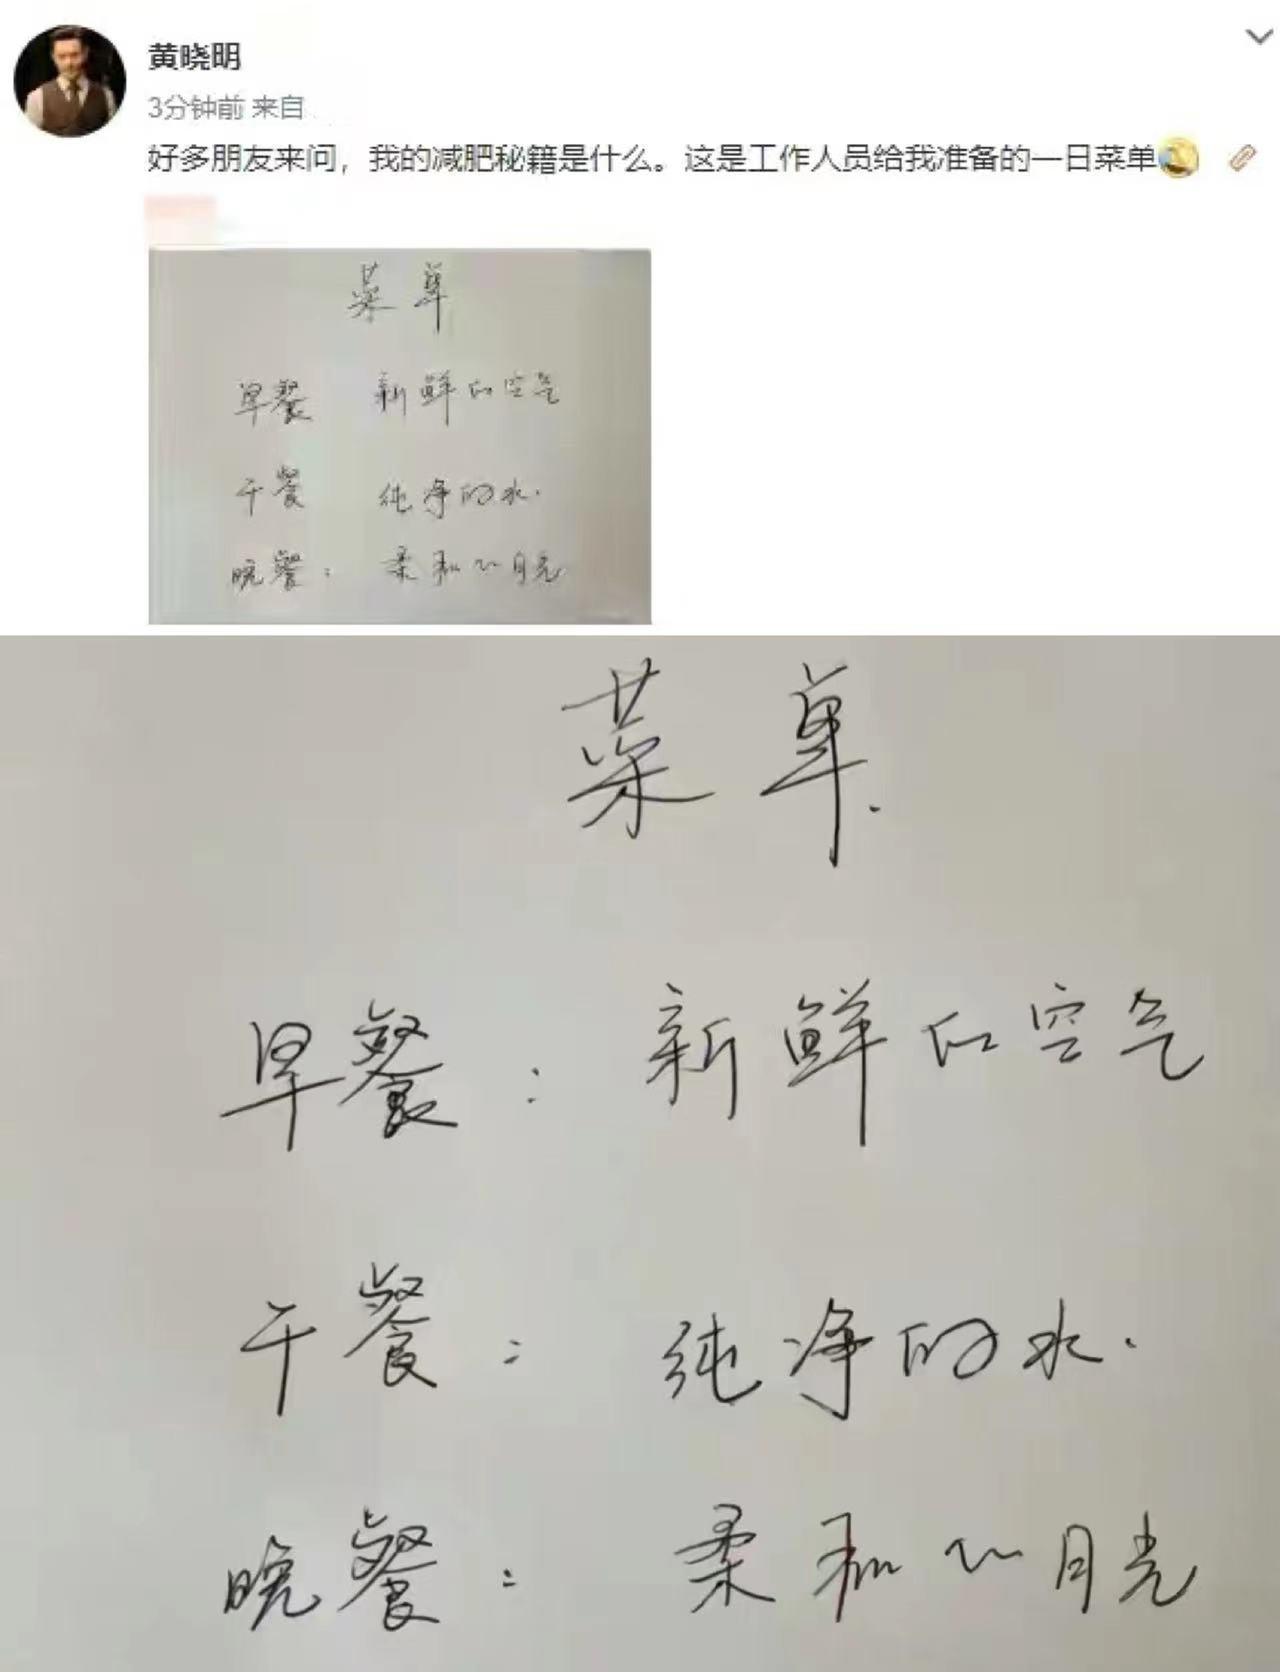 黄晓明
3分钟前 来自
好多朋友来问，我的减肥秘籍是什么。这是工作人员给我准备的一日菜单
菜单
早餐 新鲜的空气
干餐 纯净的水.
晚餐： 柔和的月光
菜单.
早餐： 新鲜的空气
干餐： 纯净的水.
晚餐： 柔和的月光